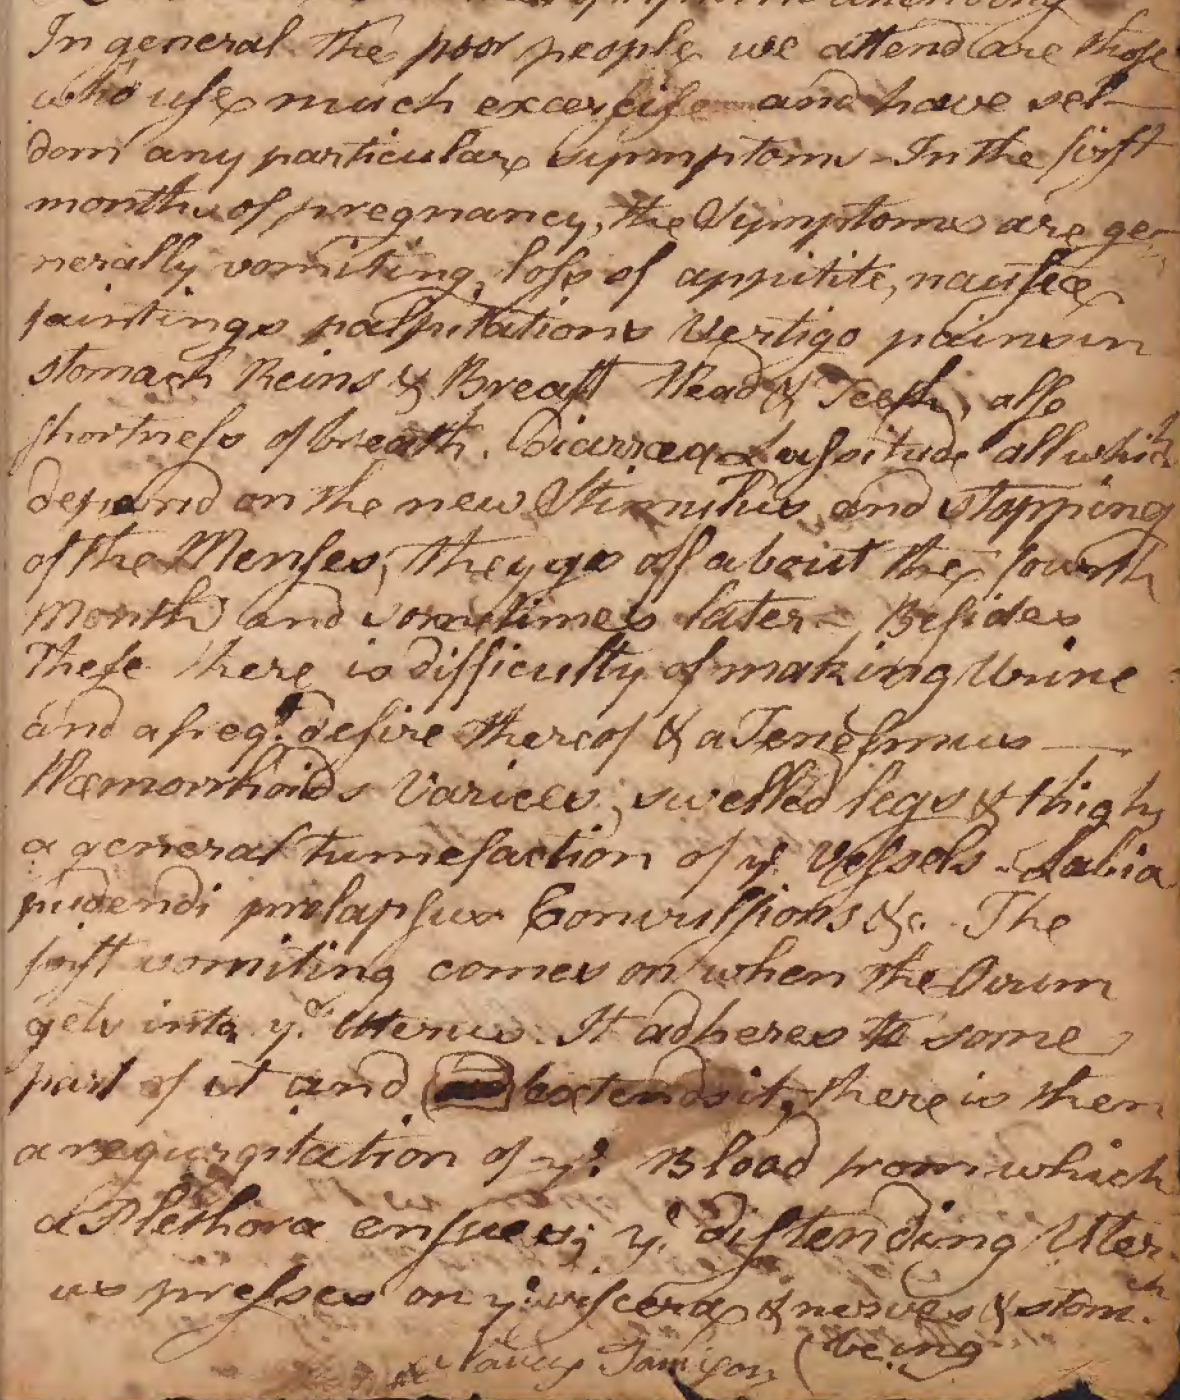 In general the poor people we attend are those
who use much excercise and have sel-
dom any particular symptom - In the first
months of pregnancy, the Symptoms are ge-
nerally vomiting, loss of appitite, nausea
faintings palpitations Vertigo pains in
stomach Reins & Breast Head & Teeth, also
shortness of breath. Diarrea & Lassitude all which
depend on the new Stimulus and stopping
of the Menses, they go off about the fourth
Month and sometimes later - Besides
These there is difficulty of making Urine
and a freqt. desire thereof & a Tenesmus —
Hæmorrhoids Varices, swelled legs & thighs
a general tumefaction of ye. Vessels - Labia
pudendi prolapsus Convulsions &c. The
first vomiting comes on when the Ovum
gets into ye. Uterus. It adheres to some
part of it and extends it, there is then
a regurgitation of ye. Blood from which
a Plethora ensues; ye. distending Uter-
us presses on ye. viscera & nerves & stom-
ch
(being